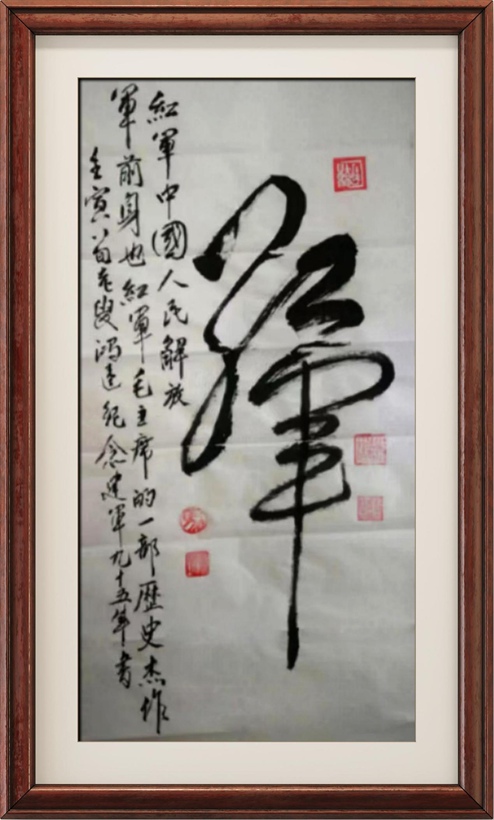 紅軍
紅軍中國人民解放
軍前身也紅軍毛主席的一部歷史杰作
壬寅八旬老叟鴻達紀念建軍九十五年書